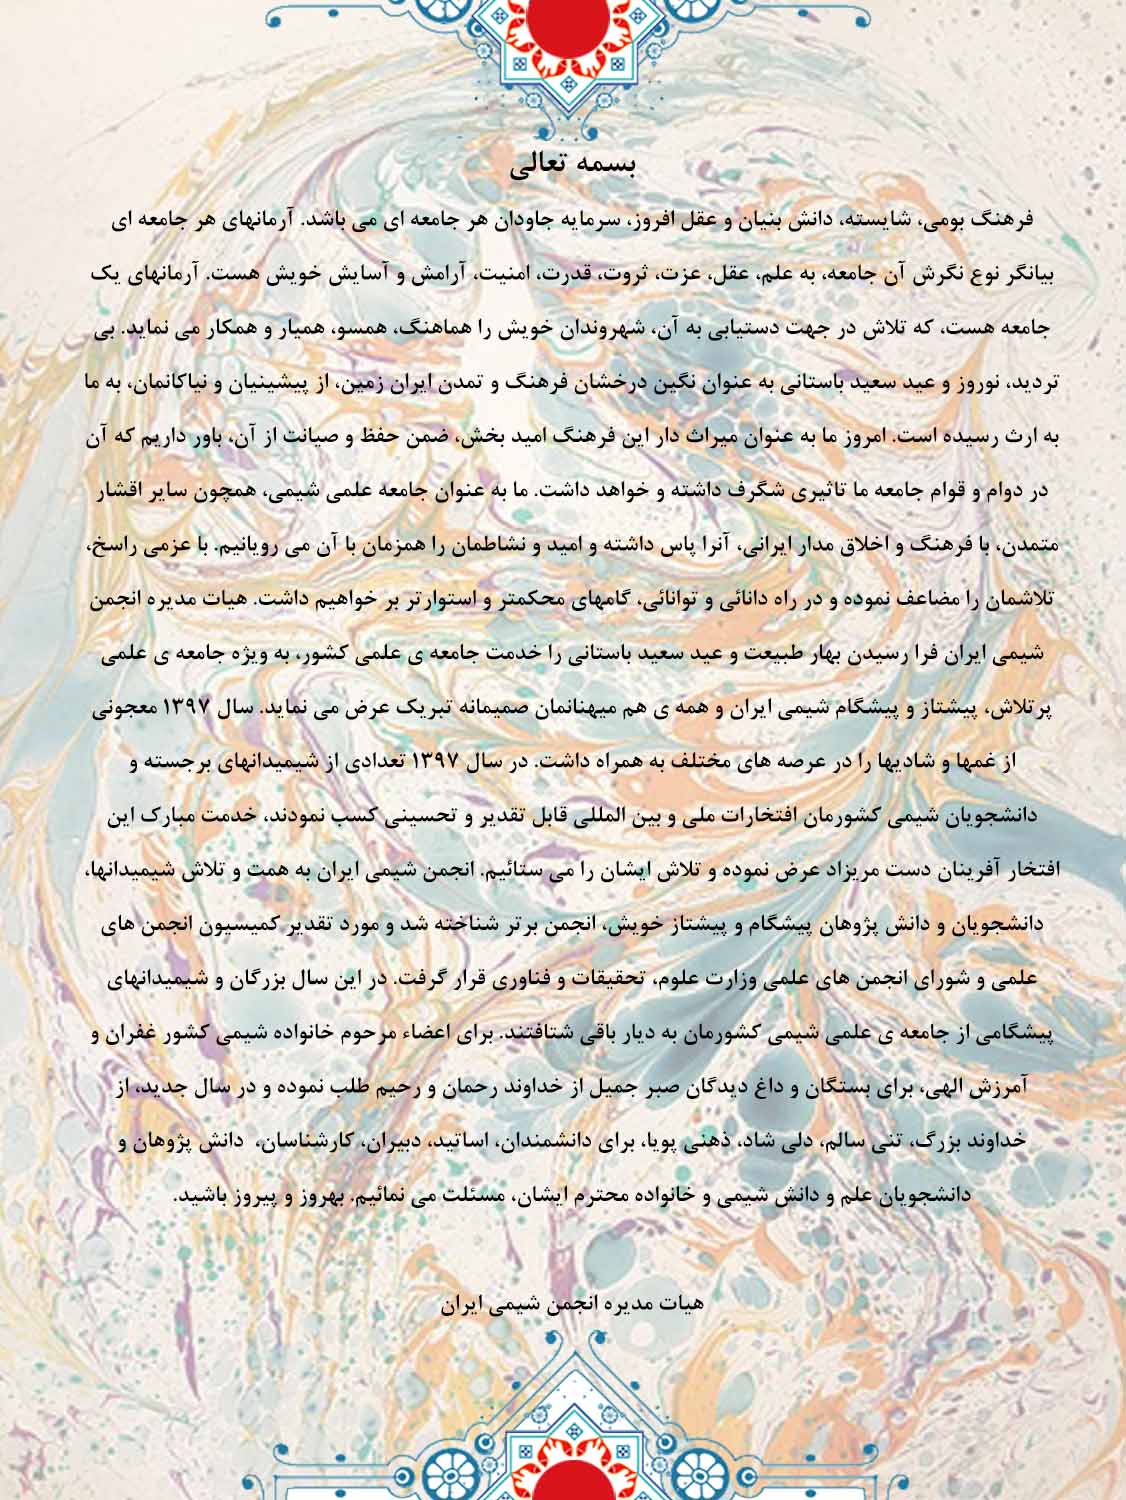 بسمه تعالی
فرهنگ بومی، شایسته، دانش بنیان و عقل افروز، سرمایه جاودان هر جامعه ای می باشد. آرمانهای هر جامعه ای
بیانگر نوع نگرش آن جامعه، به علم، عقل، عزت، ثروت، قدرت، امنیت، آرامش و آسایش خویش هست. آرمانهای یک
جامعه هست، که تلاش در جهت دستیابی به آن، شهروندان خویش را هماهنگ، همسو، همیار و همکار می نماید. بی
تردید، نوروز و عید سعید باستانی به عنوان نگین درخشان فرهنگ و تمدن ایران زمین، از پیشینیان و نیاکانمان، به ما
به ارث رسیده است. امروز ما به عنوان میراث دار این فرهنگ امید بخش، ضمن حفظ و صیانت از آن، باور داریم که آن
در دوام و قوام جامعه ما تاثیری شگرف داشته و خواهد داشت. ما به عنوان جامعه علمی شیمی، همچون سایر اقشار
متمدن، با فرهنگ و اخلاق مدار ایرانی، آنرا پاس داشته و امید و نشاطمان را همزمان با آن می رویانیم. با عزمی راسخ،
تلاشمان را مضاعف نموده و در راه دانائی و توانائی، گامهای محکمتر و استوارتر بر خواهیم داشت. هیات مدیره انجمن
شیمی ایران فرا رسیدن بهار طبیعت و عید سعید باستانی را خدمت جامعه ی علمی کشور، به ویژه جامعه ی علمی
پرتلاش، پیشتاز و پیشگام شیمی ایران و همه ی هم میهنانمان صمیمانه تبریک عرض می نماید. سال ۱۳۹۷ معجونی
از غمها و شادیها را در عرصه های مختلف به همراه داشت. در سال ۱۳۹۷ تعدادی از شیمیدانهای برجسته و
دانشجویان شیمی کشورمان افتخارات ملی و بین المللی قابل تقدیر و تحسینی کسب نمودند، خدمت مبارک این
افتخار آفرینان دست مریزاد عرض نموده و تلاش ایشان را می ستائیم. انجمن شیمی ایران به همت و تلاش شیمیدانها،
دانشجویان و دانش پژوهان پیشگام و پیشتاز خویش، انجمن برتر شناخته شد و مورد تقدیر کمیسیون انجمن های
علمی و شورای انجمن های علمی وزارت علوم، تحقیقات و فناوری قرار گرفت. در این سال بزرگان و شیمیدانهای
پیشگامی از جامعه ی علمی شیمی کشورمان به دیار باقی شتافتند. برای اعضاء مرحوم خانواده شیمی کشور غفران و
آمرزش الهی، برای بستگان و داغ دیدگان صبر جمیل از خداوند رحمان و رحیم طلب نموده و در سال جدید، از
خداوند بزرگ، تنی سالم، دلی شاد، ذهنی پویا، برای دانشمندان، اساتید، دبیران، کارشناسان، دانش پژوهان و
دانشجویان علم و دانش شیمی و خانواده محترم ایشان، مسئلت می نمائیم. بهروز و پیروز باشید.
هیات مدیره انجمن شیمی ایران